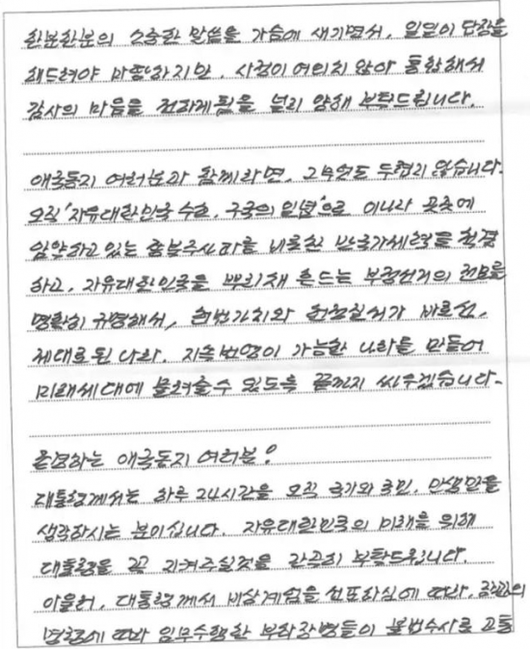 한분한분의 소중한 말씀을 가슴에 새기면서, 일일이 답장을
해드려야 마땅하지만, 사정이 여의치 않아 통합해서
감사의 마음을 전하게됨을 널리 양해 부탁드립니다.
애국동지 여러분과 함께라면, 그무엇도 두렵지 않습니다.
오직 '자유대한민국 수호, 구국의 일념'으로 이나라 곳곳에
암약하고 있는 종북주사파를 비롯한 반국가세력을 척결
하고, 자유대한민국을 뿌리채 흔드는 부정선거의 전모를
명확히 규명해서, 헌법가치와 헌정질서가 바로선,
제대로된 나라. 지속번영이 가능한 나라를 만들어
미래세대에 물려줄수 있도록 끝까지 싸우겠습니다-
존경하는 애국동지 여러분!
대통령께서는 하루 24시간을 오직 국가와 국민, 민생만을
생각하시는 분이십니다. 자유대한민국의 미래를 위해
대통령을 꼭 지켜주실것을 간곡히 부탁드립니다.
아울러, 대통령께서 비상계엄을 선포하심에 따라, 장관의
명령에 따라 임무수행한 부하장병들이 불법수사로 고통